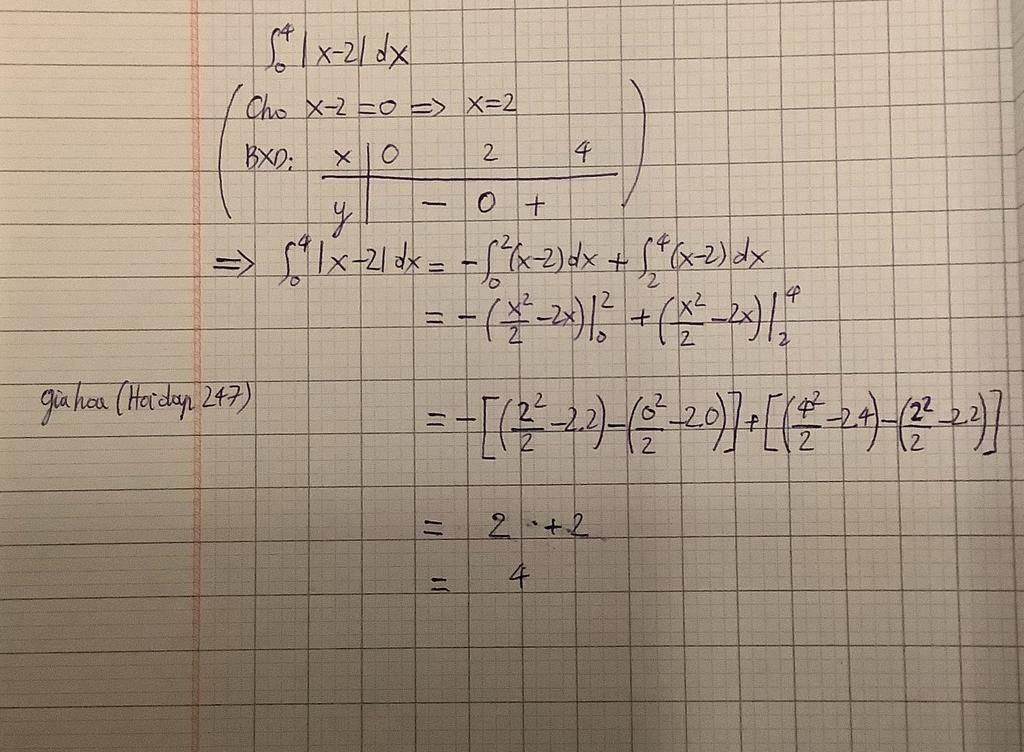 ∫₀⁴ |x-2| dx
Cho x-2 = 0 => x=2
BXD: x | 0 2 4
y | - 0 +
=> ∫₀⁴ |x-2| dx = -∫₀²(x-2) dx + ∫₂⁴(x-2) dx
= -(x²/2 - 2x)|₀² + (x²/2 - 2x)|₂⁴
giahoa (Hoidap 247)
= -[(2²/2 - 2.2) - (0²/2 - 2.0)] + [(4²/2 - 2.4) - (2²/2 - 2.2)]
= 2 + 2
= 4